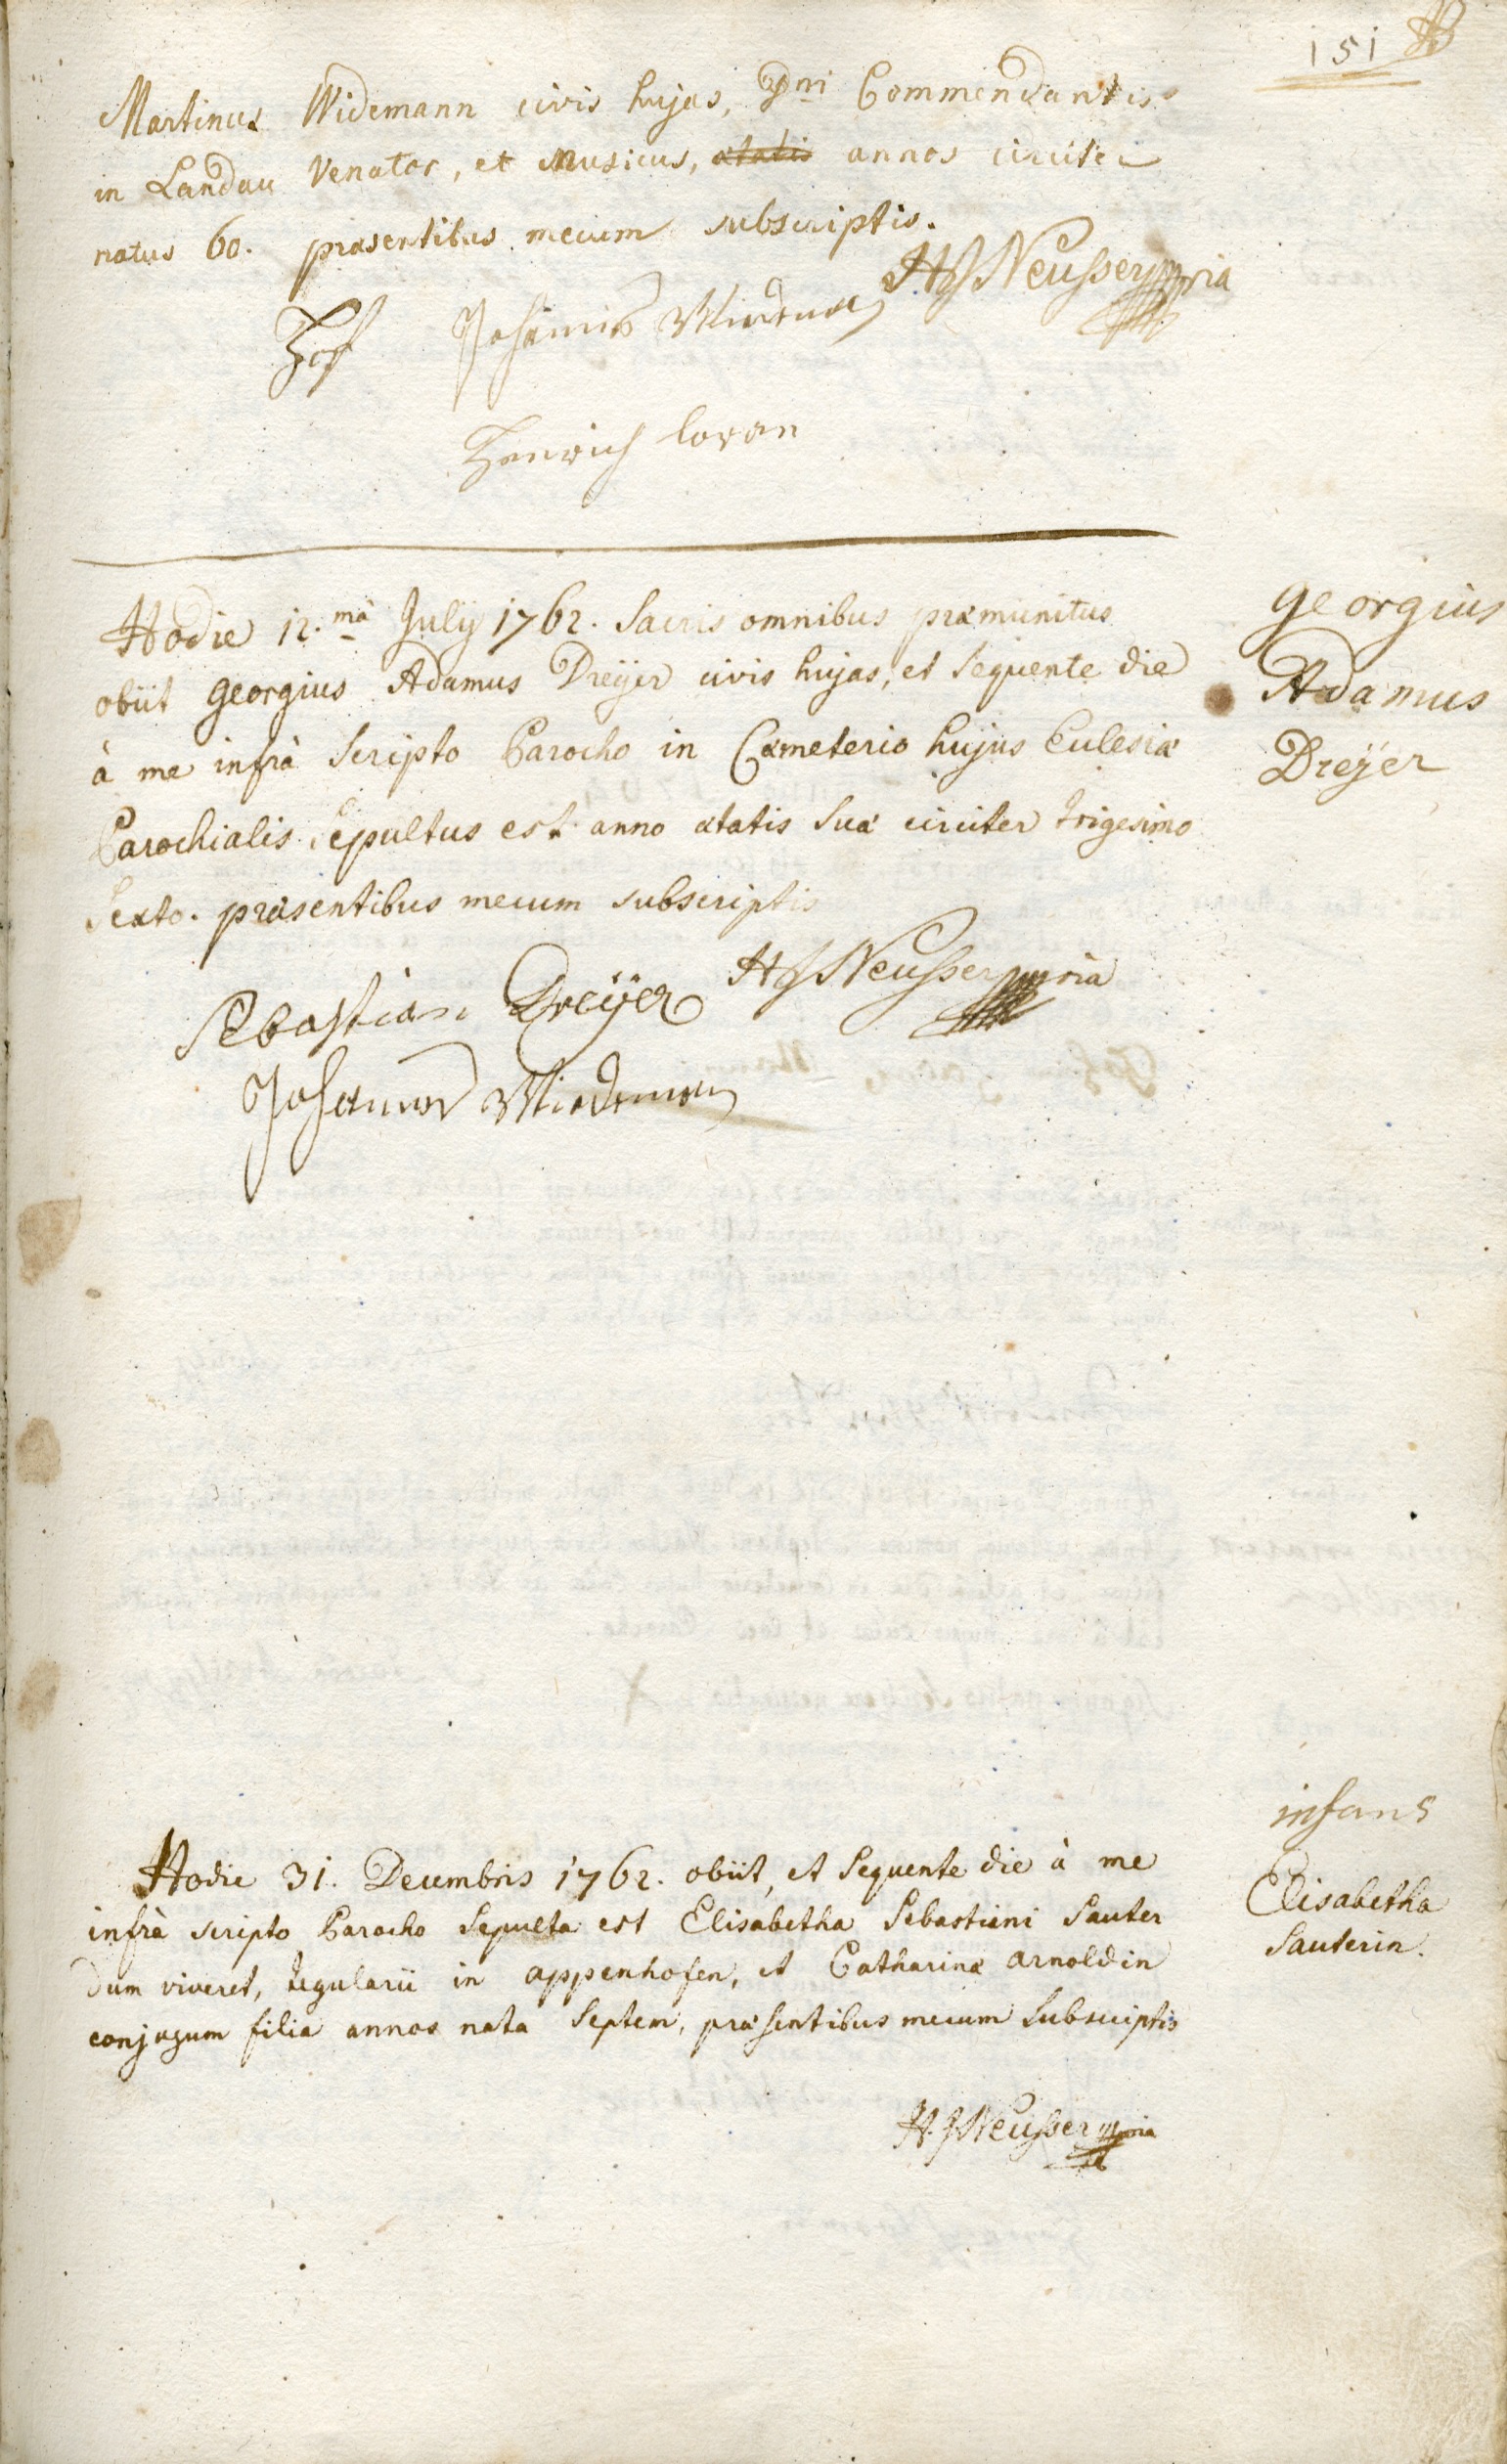 151
Martinus Widemann civis hujas, Dni Commendantis
in Landau Venator, et Musicus, ætatis annos circiter
natus 60. præsentibus mecum subscriptis.
HJ Neusser mpria
Johannes Wiedeman
Henrich
Hodie 12.ma July 1762. Sacris omnibus præmunitus
obiit georgius Adamus Dreÿer civis hujas, et sequente die
à me infrà Scripto Parocho in Cæmeterio hujus Ecclesiæ
Parochialis Sepultus est anno ætatis suæ circiter trigesimo
Sexto. præsentibus mecum subscriptis
georgius
Adamus
Dreÿer
HJ Neusser mpria
Sebastian Dreÿer
Johannes Wiedeman
Hodie 31. Decembris 1762. obiit, et Sequente die à me
infrà scripto Parocho Sepulta est Elisabetha Sebastiani Sauter
dum viveret, tegularii in appenhofen, et Catharinæ arnoldin
conjugum filia annos nata Septem, præsentibus mecum Subscriptis
infans
Elisabetha
Sauterin.
H. J Neusser mpria